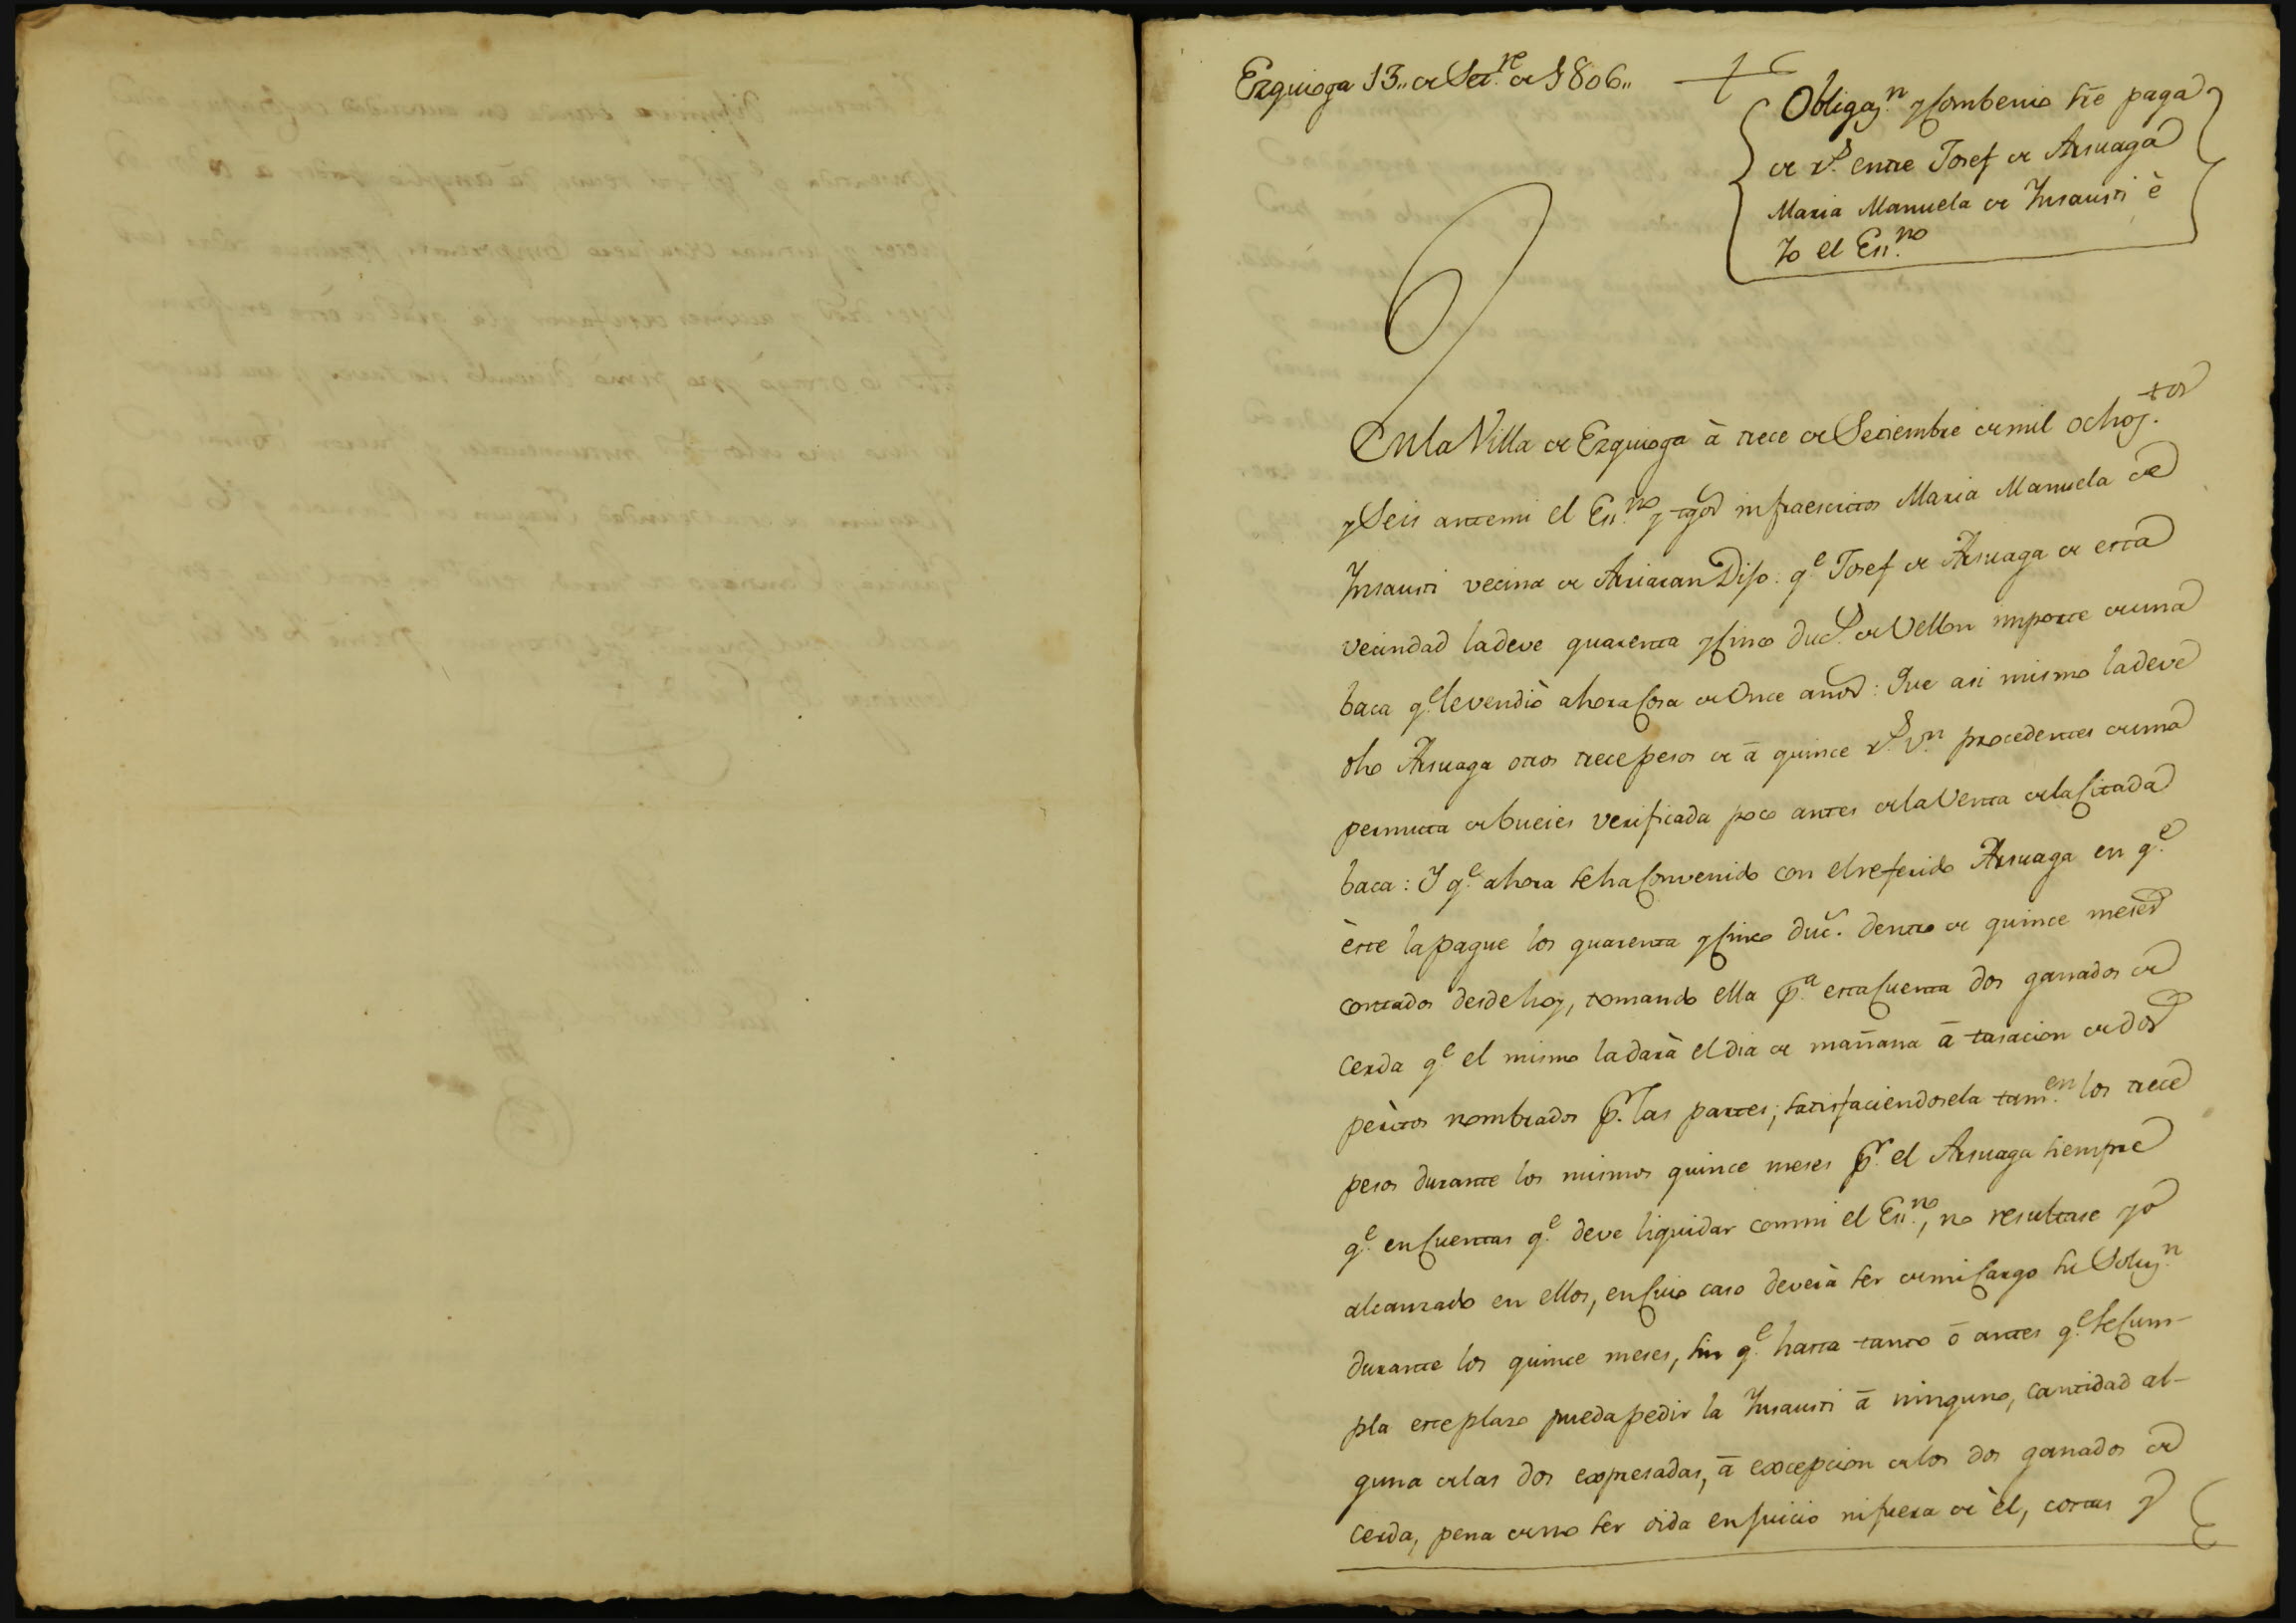 Ezquioga 13,, de Set.re de 1806,,
Obligaz.n y Combenio sre paga
de r.s entre Josef de Arsuaga
Maria Manuela de Insausti è
Yo el Es.no
En la Villa de Ezquioga à trece de Setiembre de mil ochoz.tos
y Seis ante mi el Es.no y tgos infraescritos Maria Manuela de
Insausti vecina de Arriaran Dijo: q.e Josef de Arsuaga de esta
vecindad la deve quarenta y Cinco duc.s de Vellon importe de una
baca q.e le vendiò ahora Cosa de Once años: Que asi mismo la deve
dho Arsuaga otros trece pesos de ā quince r.s v.n procedentes de una
permutta de bueies verificada poco antes de la Venta de la Citada
baca: Y q.e ahora se ha Convenido con el referido Arsuaga en q.e
èste la pague los quarenta y Cinco duc. dentro de quince meses
contados desde hoy, tomando ella p.a esta Cuenta dos ganados de
Cerda q.e el mismo la darà el dia de mañana ā tasacion de dos
pèritos nombrados p.r las partes; satisfaciendosela tam.en los trece
pesos durante los mismos quince meses p.r el Arsuaga siempre
q.e en Cuentas q.e deve liquidar conmi el Es.no, no resultase yo
alcanzado en ellos, en Cuio caso deverà ser de mi Cargo su Soluz.n
durante los quince meses, sin q.e hasta tanto ō antes q.e se Cum-
pla este plazo pueda pedir la Insausti ā ninguno, cantidad al-
guna de las dos expresadas, ā excepcion de los dos ganados de
Cerda, pena de no ser oida en juicio ni fuera de èl, costas y